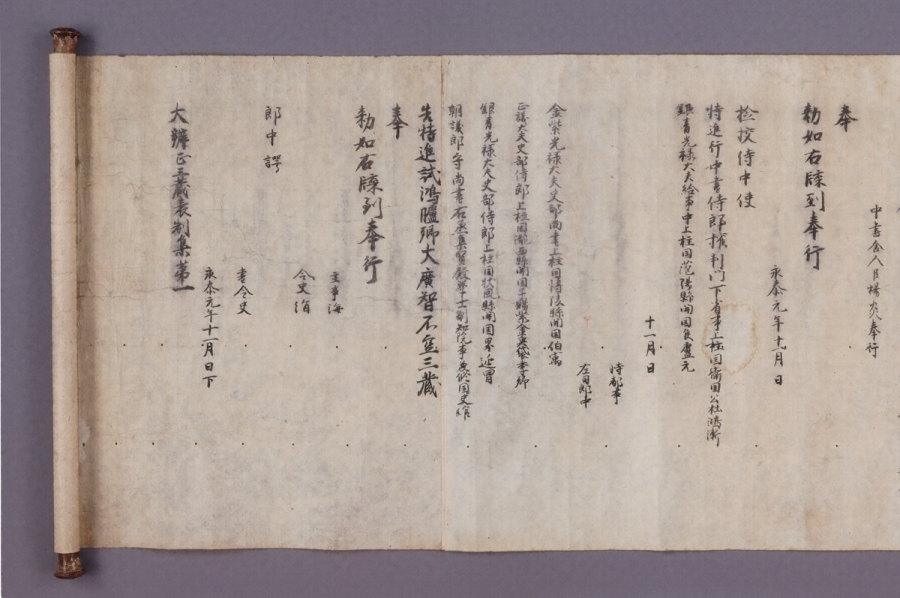 中書舍人臣楊炎奉行
奉
勅如右牒到奉行
永泰元年十一月日
檢挍侍中使
特進行中書侍郎攝判門下省事上柱国衛国公杜鴻漸
銀青光祿大夫給事中上柱国范陽縣開国
十一月日
時都事
左司郎中
金紫光祿大夫吏部尚書上柱国
正議大夫吏部侍郎上柱国
銀青光祿大夫吏部侍郎上柱国
朝議郎守尚書右丞集賢殿學士副知院事兼修国史
告特進試鴻臚卿大廣智不空三藏
奉
勅如右牒到奉行
主事海
令史
郎中
書令史
永泰元年十一月日下
大辯正三藏表制集第一